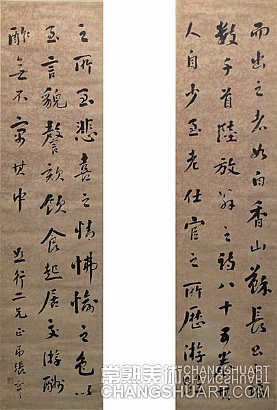 而出之者如白香山蘇長公皆
數千首陸放翁之詩八十五卷其
人自少至老仕宦之所歷游覽
之所至悲喜之情怫愉之色以
至言貌謦欬飲食起居交游酬
酢無不寓其中 行二兄正 弟張
常熟美術 CHANGSHUART